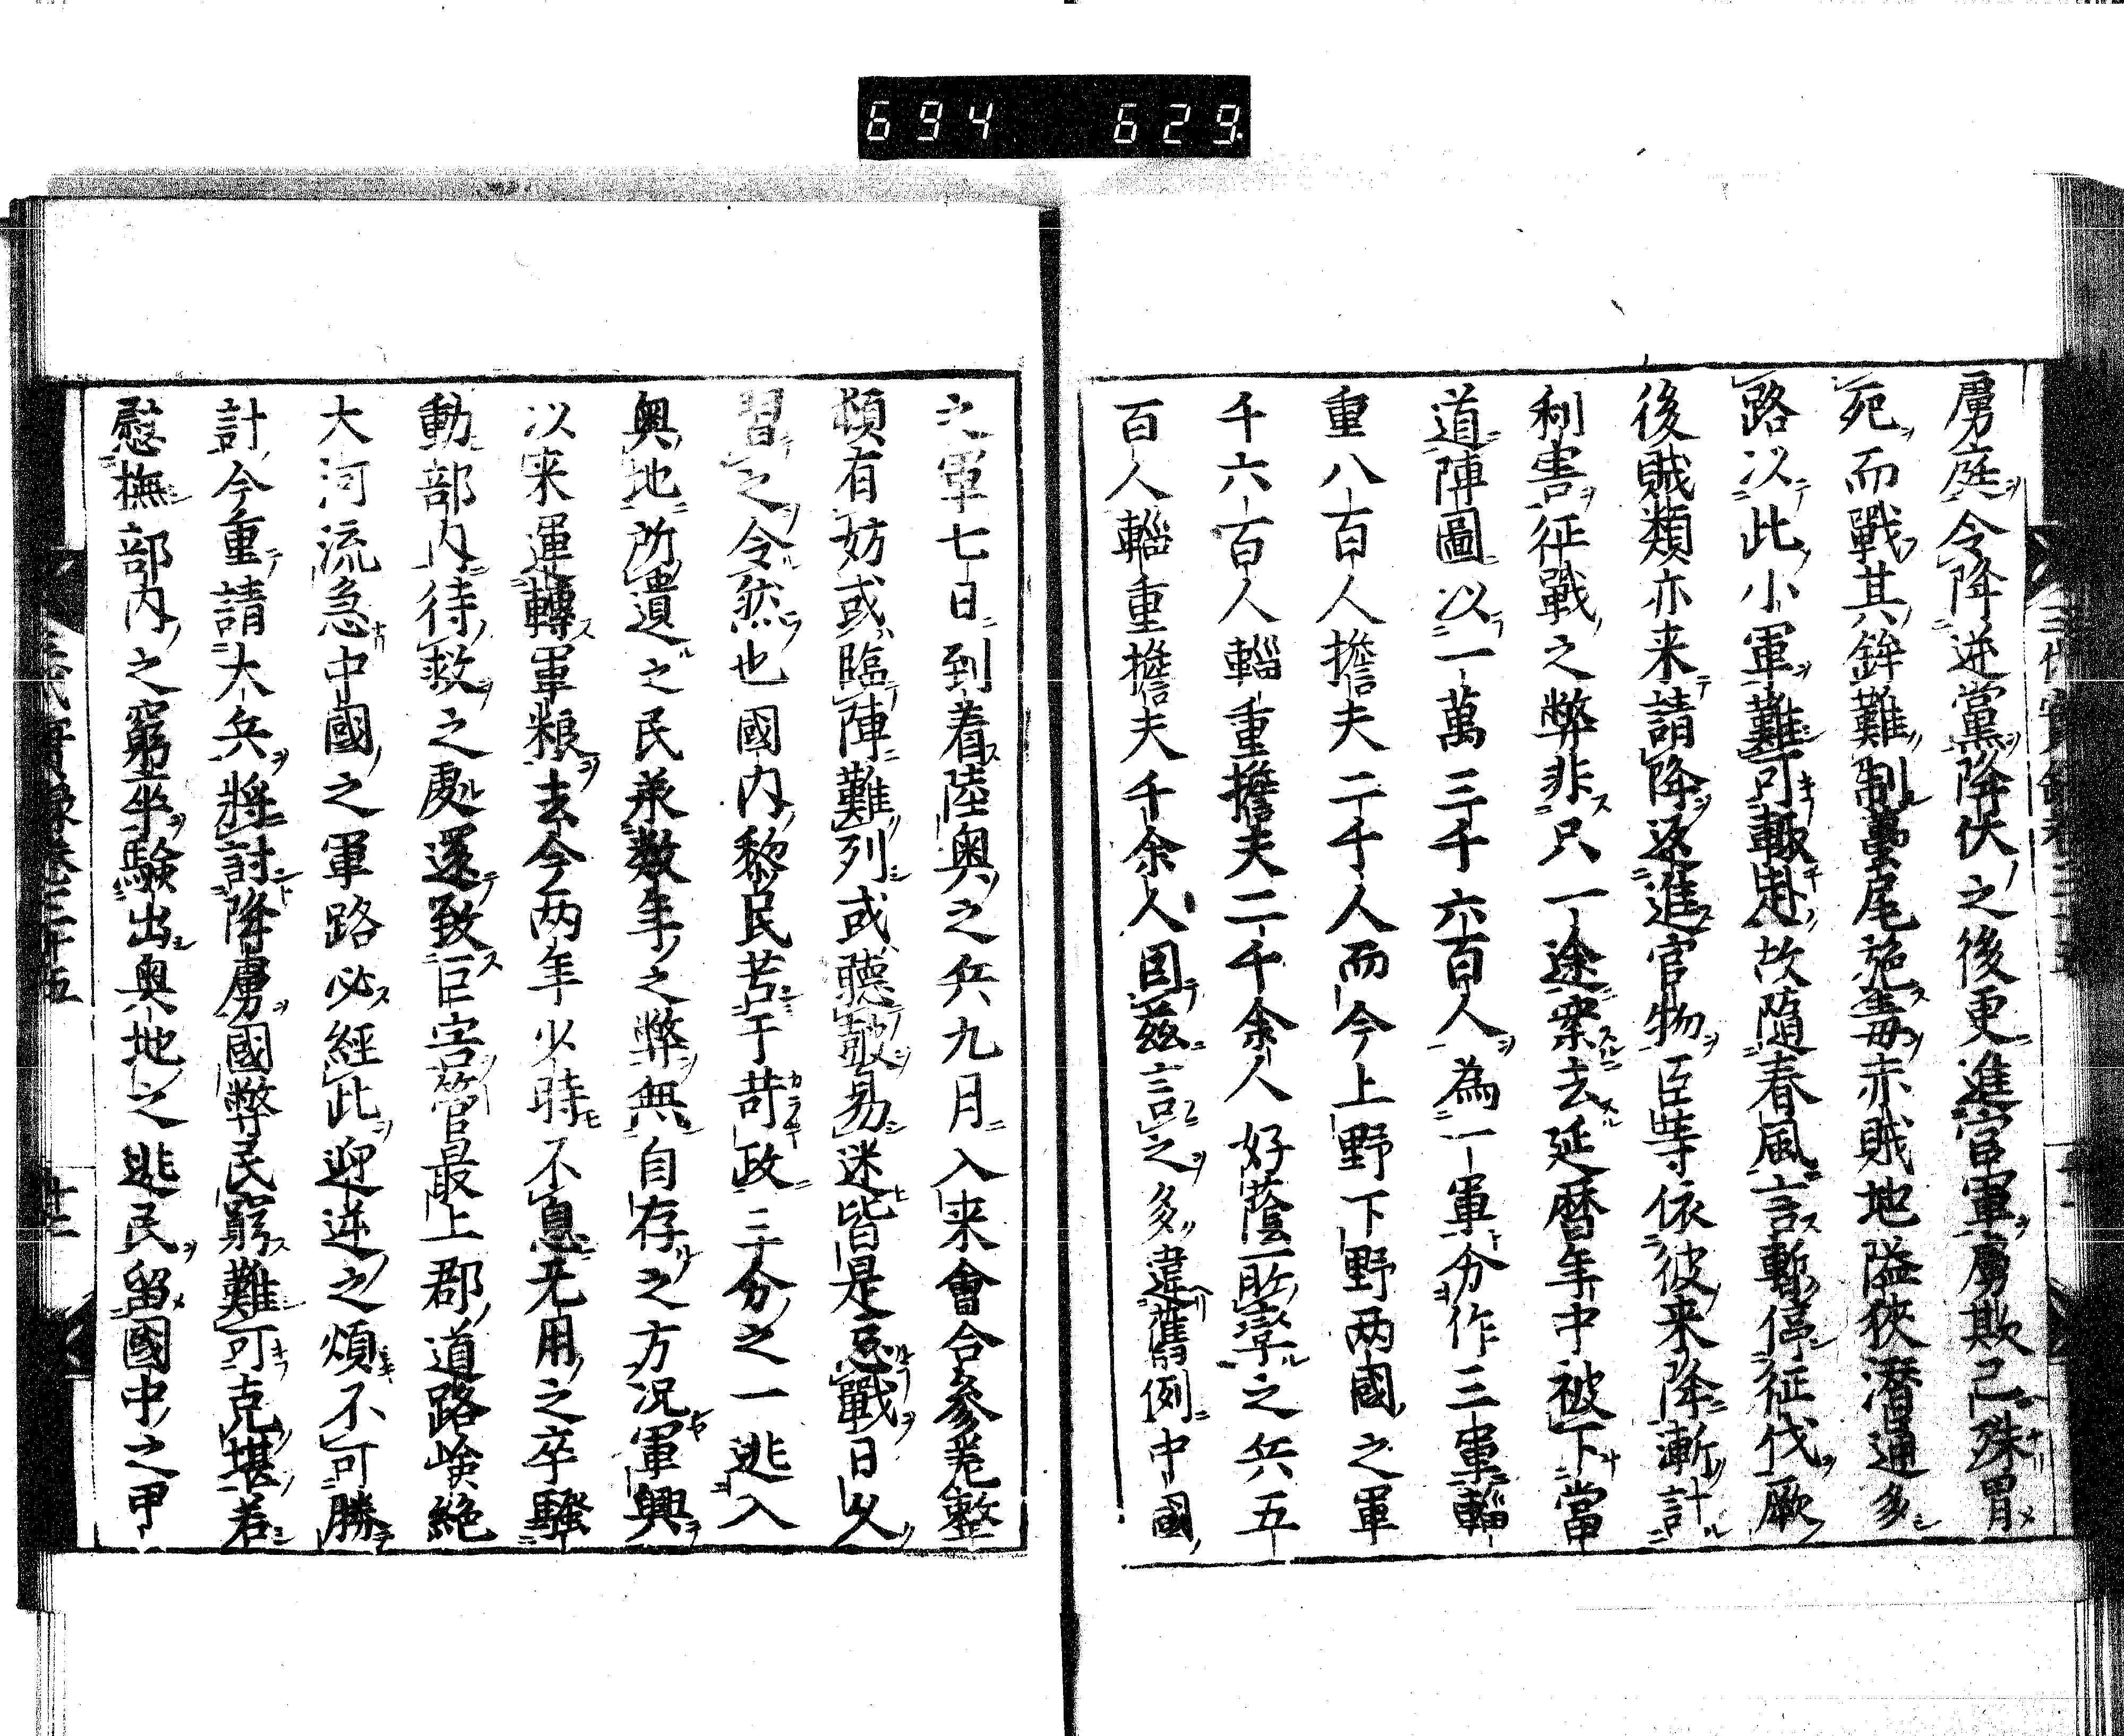 694 629
虜庭令降逆黨降伏之後更進官軍虜欺己殊冒
死而戰其鉾難制蠆尾施毒亦賊地隘狹潜通多
路以此小軍難可輙赴故隨春風言暫停征伐厥
後賊類亦来請降返進官物臣等依彼来降漸計
利害征戰之弊非只一途案去延暦年中被下當
道陣圖以一萬三千六百人為一軍分作三軍輜
重八百人擔夫二千人而今上野下野两國之軍
千六百人輜重擔夫二千余人好蔭所率之兵五
百人輜重擔夫千余人因兹言之多違舊例中國
之軍七日到着陸奥之兵九月入来會合參差整
頓有妨或臨陣難列或聴皷易迷皆是忘戰日久
習之令然也國内黎民苦于苛政三分之一逃入
奥地所遺之民承数年之弊無自存之方况軍興
以来運轉軍粮去今两年少時不息无用之卒騒
動部内待救之處還致巨害管最上郡道路嶮絶
大河流急中國之軍路必經此迎逆之煩不可勝
計今重請大兵將討降虜國弊民窮難可克堪若
慰撫部内之窮卒験出奥地之逃民留國中之甲